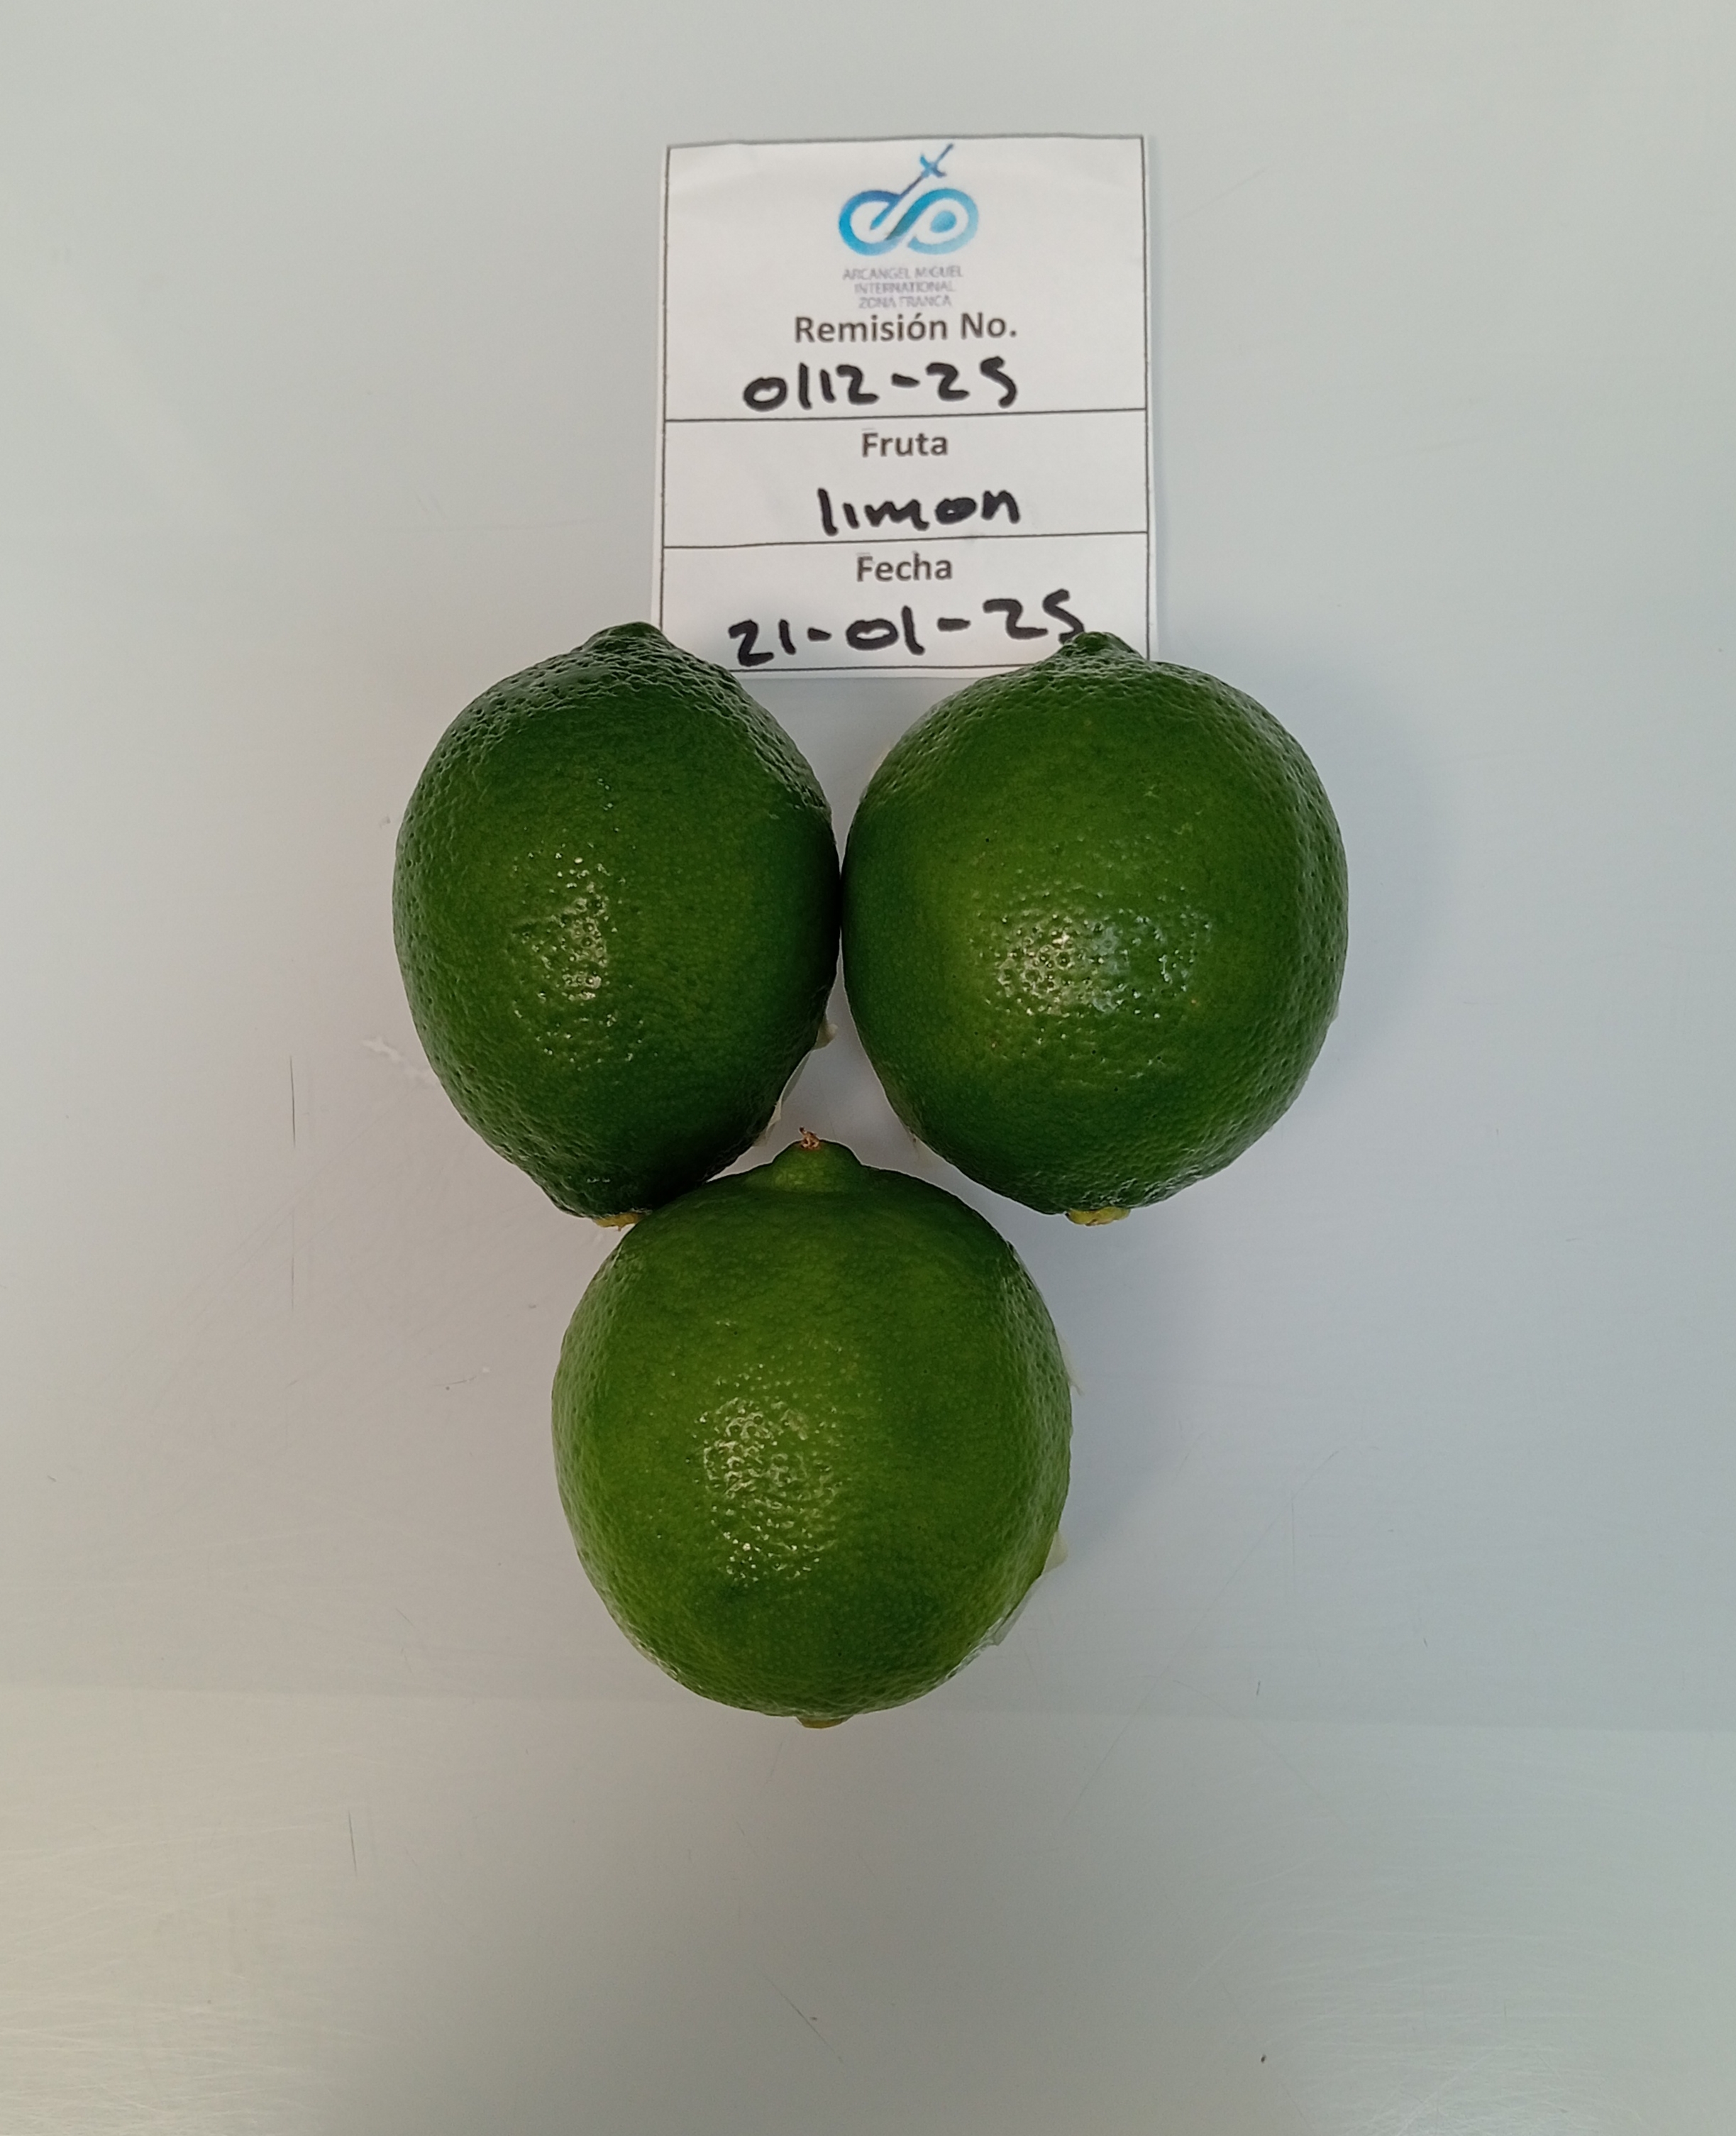 ARCANGEL MIGUEL
INTERNATIONAL
ZONA FRANCA
Remisión No.
0112-25
Fruta
limon
Fecha
21-01-25